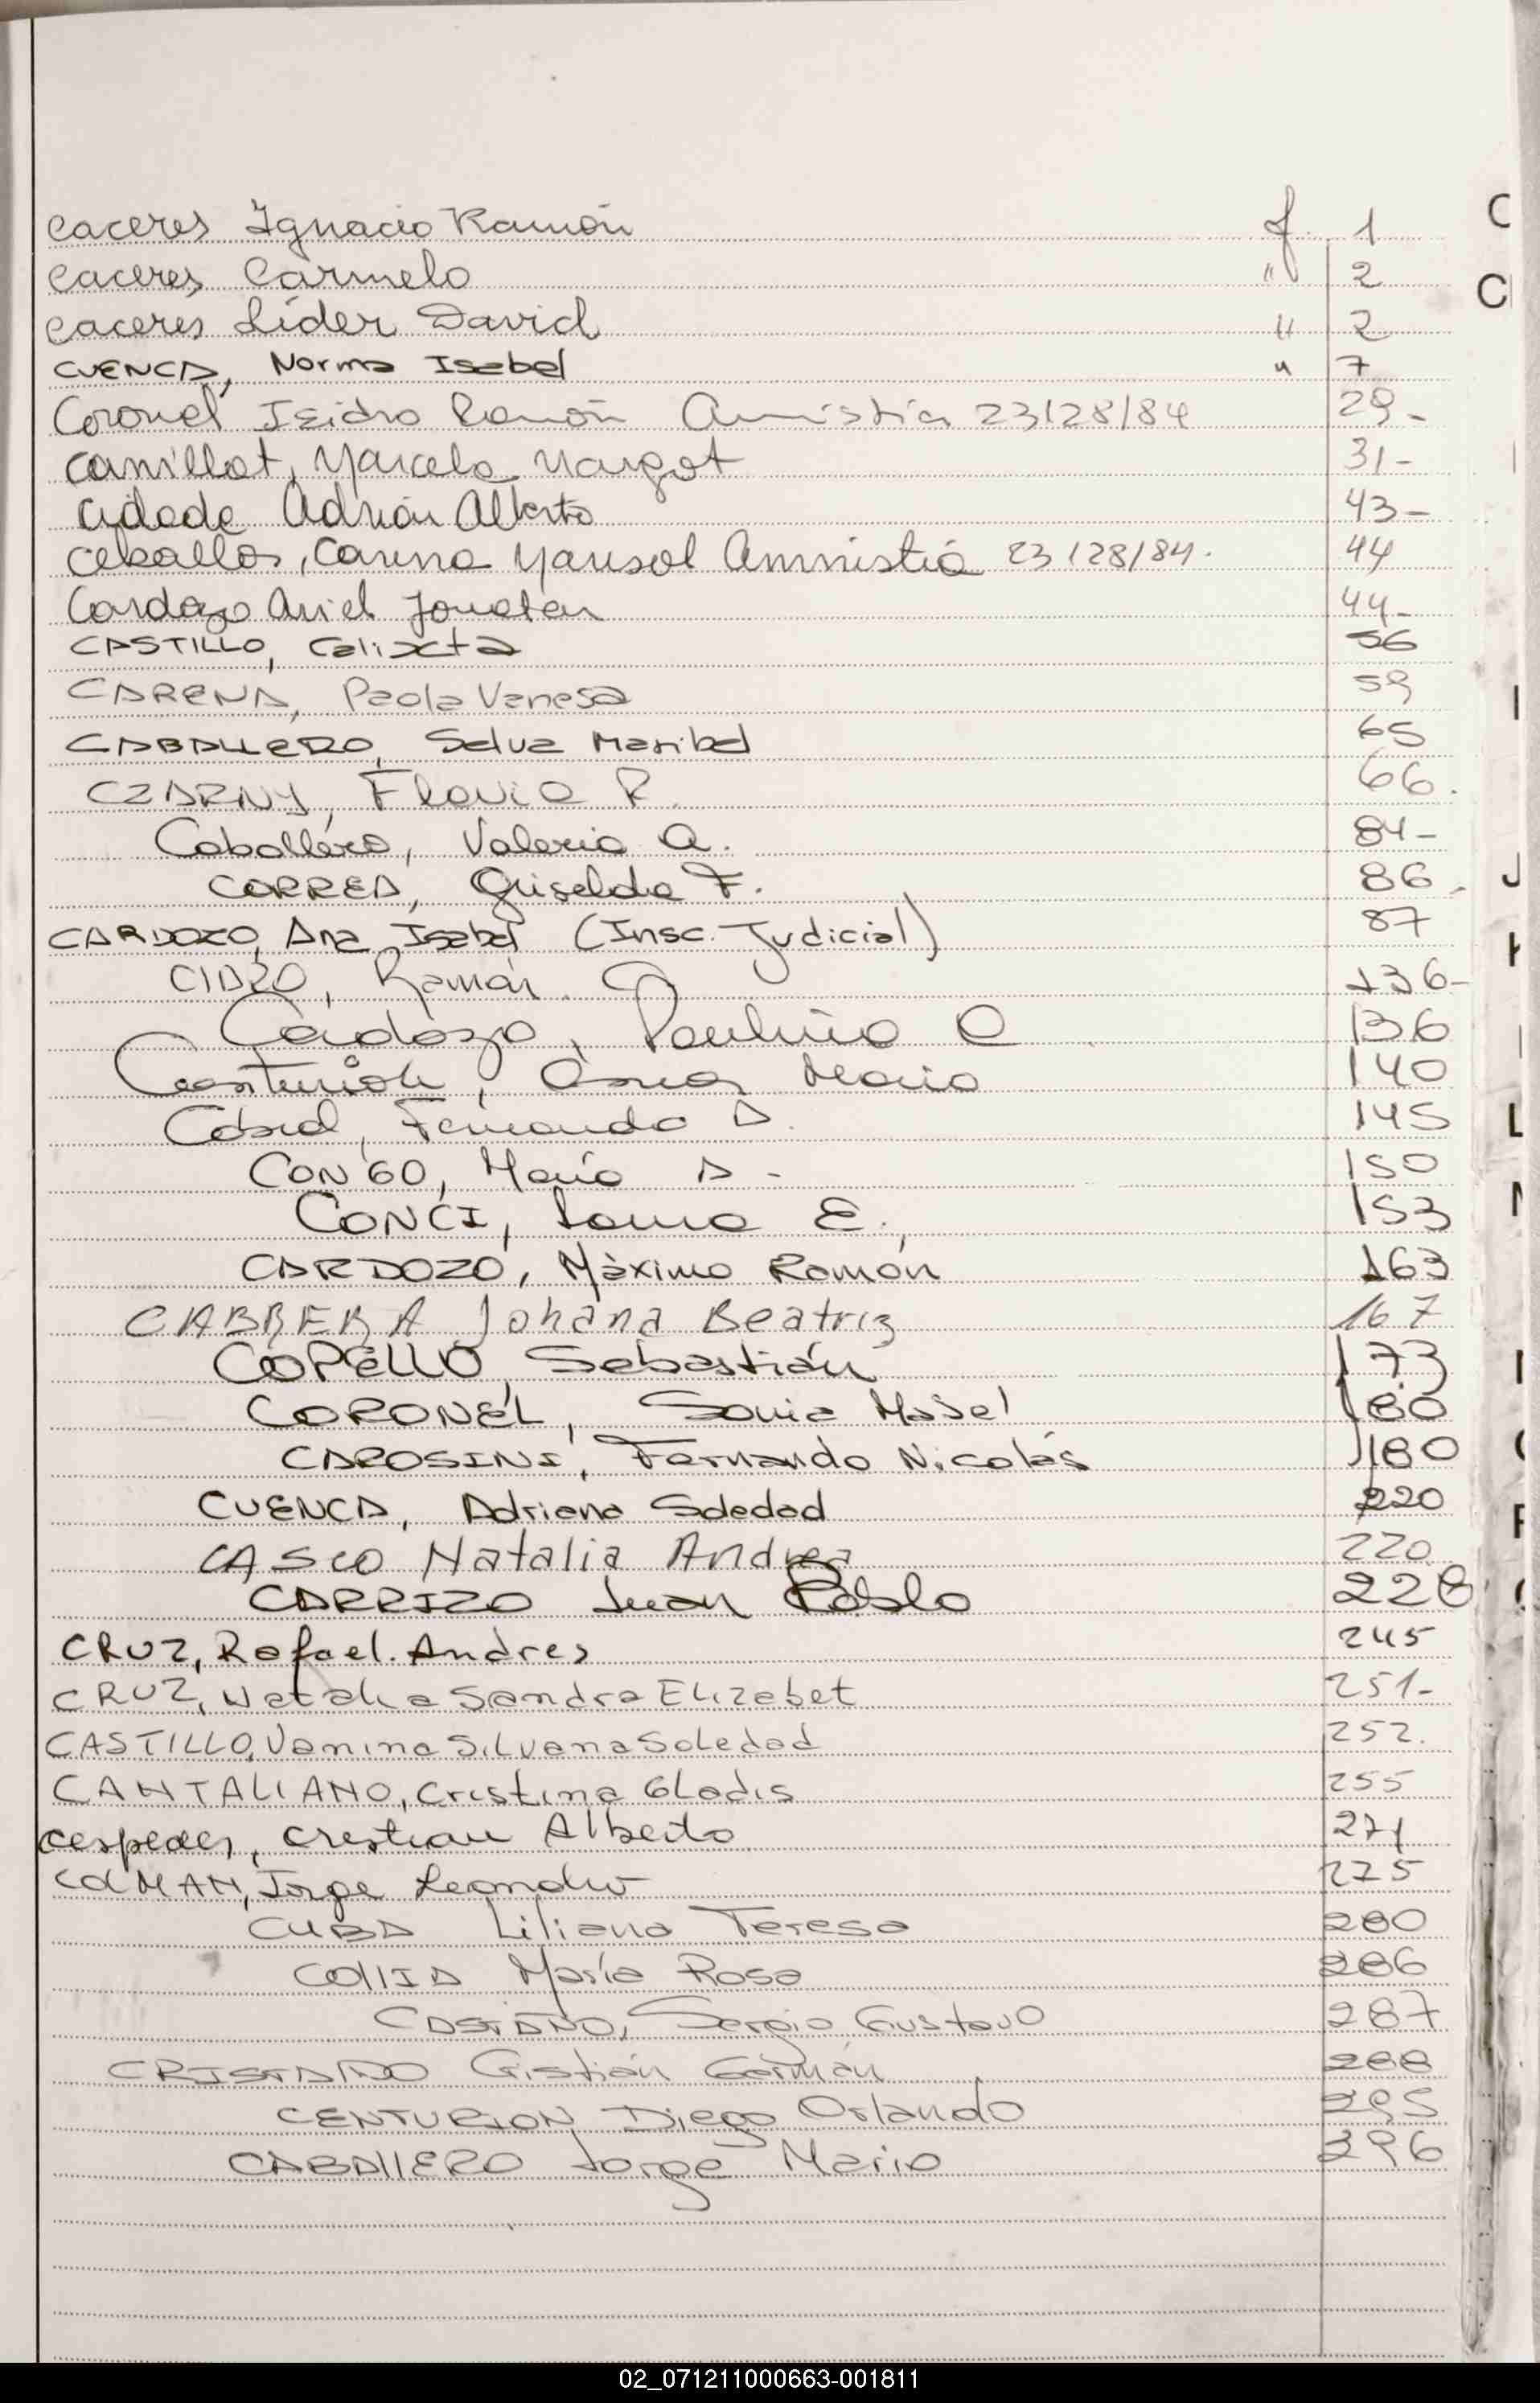 Caceres Ignacio Ramón f. 1
Caceres, Carmelo " 2
Caceres Líder David " 2
CUENCA, Norma Isabel " 7
Coronel Isidro Ramón Amnistia 23128/84 29-
Camillot, Marcela Margot 31-
Cidade Adrián Alberto 43-
Ceballos, Carina Marisol Amnistia 23128/84. 44
Cardozo Ariel Jonatan 44-
CASTILLO, Calixta 56
CARENA, Paola Vanesa 59
CABALLERO, Selva Maribel 65
CZARNY, Flavia R. 66.
Caballero, Valeria A. 84-
CORREA, Griselda F. 86.
CARDOZO, Ana Isabel (Insc. Judicial) 87
Ramón 136-
Cardozo, Paulino C 136
Centurión, María 140
Cabral, Fernando D. 145
CONGO, María A - 150
CONCI, E. 153
CARDOZO, Máximo Ramón 163
CABRERA Johana Beatriz 167
COPELLO, Sebastián 173
CORONEL, Sonia Mabel 180
CAROSINI, Fernando Nicolás 180
CUENCA, Adriana Soledad 220
CASCO Natalia Andrea 220
CARRIZO Juan Pablo 228
CRUZ, Rafael. Andres 245
CRUZ, Natalia Sandra Elizabet 251-
CASTILLO, Vanina Silvana Soledad 252.
CANTALIANO, Cristina Gladis 255
Cespedes, Cristian Alberto 271
COLMAN, Jorge Leandro 275
CUBA Liliana Teresa 280
COLLIA María Rosa 286
CASTAÑO, Sergio Gustavo 287
CRISTALDO Cristián Germán 288
CENTURION Diego Orlando 295
CABALLERO Jorge Mario 296
C
C
I
J
L
02_071211000663-001811